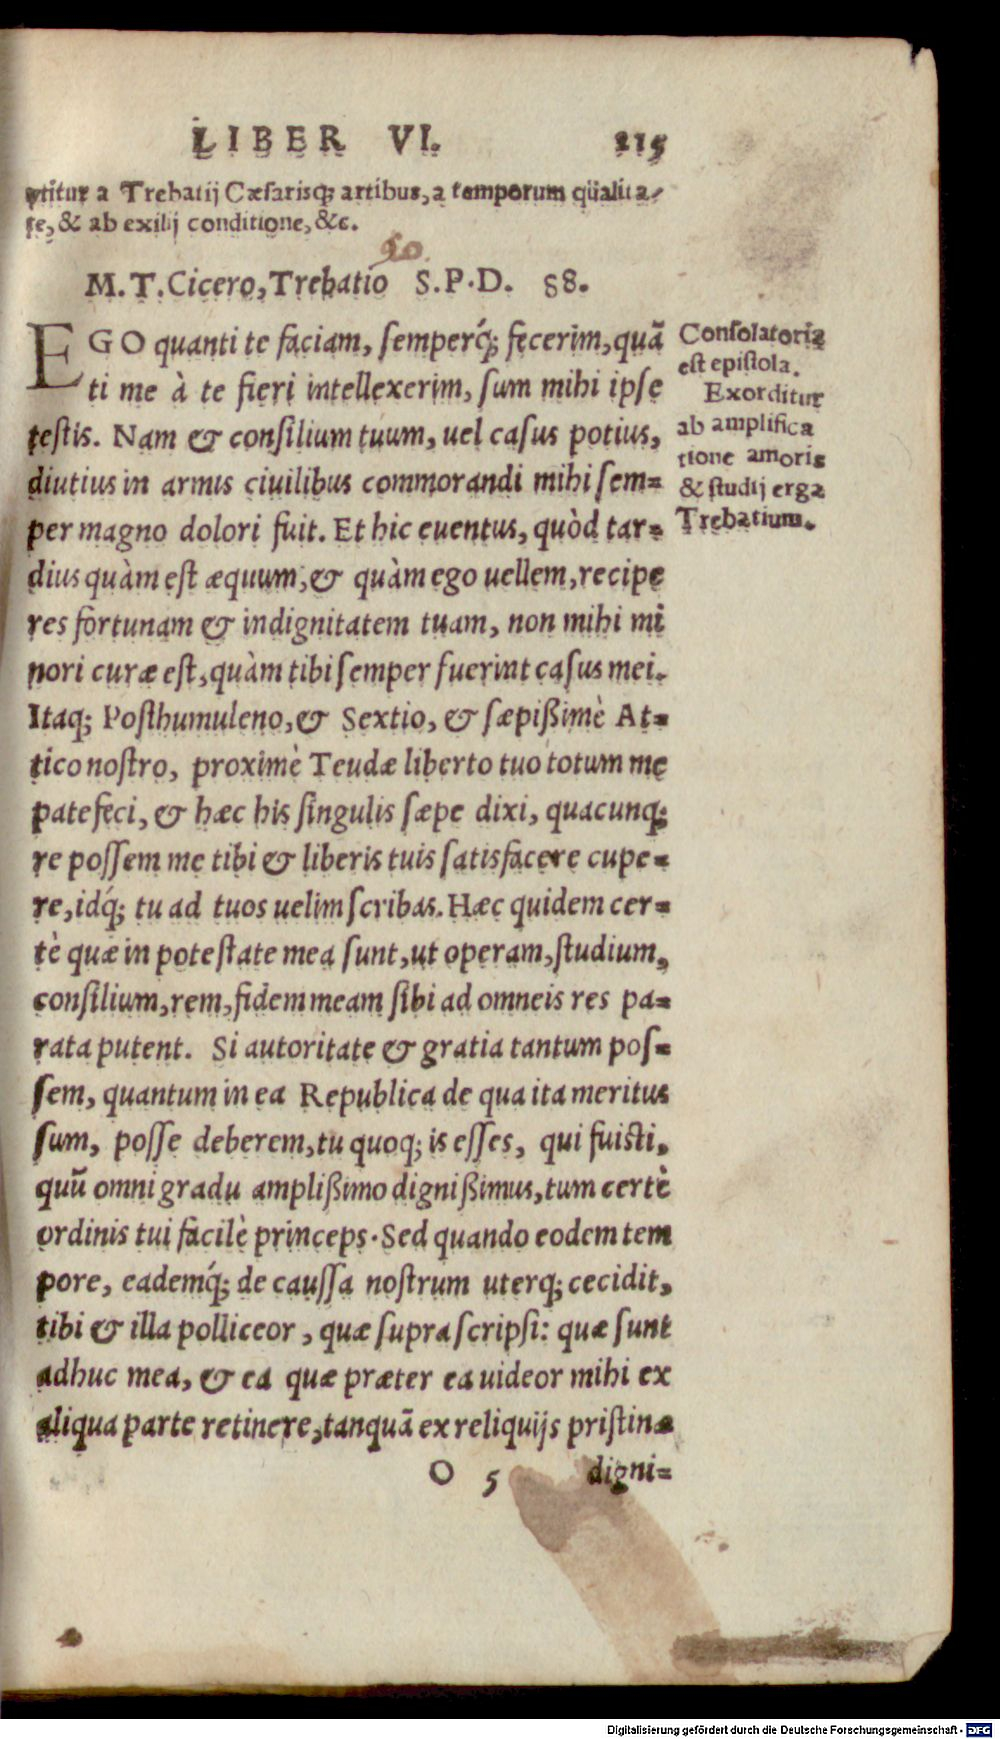 LIBER VI. 215
ytitur a Trebatij Cæsarisq; artibus, a temporum qualita-
te, & ab exilij conditione, &c.
M. T. Cicero, Trebatio S. P. D. 88.
EGO quanti te faciam, semperq́; fecerim, quã
ti me à te fieri intellexerim, sum mihi ipse
testis. Nam & consilium tuum, uel casus potius,
diutius in armis ciuilibus commorandi mihi sem=
per magno dolori fuit. Et hic euentus, quòd tar=
dius quàm est æquum, & quàm ego uellem, recipe
res fortunam & indignitatem tuam, non mihi mi
nori curæ est, quàm tibi semper fuerint casus mei.
Itaq; Posthumuleno, & Sextio, & sæpißimè At=
tico nostro, proximè Teudæ liberto tuo totum me
patefeci, & hæc his singulis sæpe dixi, quacunq;
re possem me tibi & liberis tuis satisfacere cupe=
re, idq́; tu ad tuos uelim scribas. Hæc quidem cer=
tè quæ in potestate mea sunt, ut operam, studium,
consilium, rem, fidem meam sibi ad omneis res pa=
rata putent. Si autoritate & gratia tantum pos=
sem, quantum in ea Republica de qua ita meritus
sum, posse deberem, tu quoq; is esses, qui fuisti,
quũ omni gradu amplißimo dignißimus, tum certè
ordinis tui facilè princeps. Sed quando eodem tem
pore, eademq́; de caussa nostrum uterq; cecidit,
tibi & illa polliceor, quæ supra scripsi: quæ sunt
adhuc mea, & ea quæ præter ea uideor mihi ex
aliqua parte retinere, tanquã ex reliquijs pristinæ
O 5 digni=
Consolatoria
est epistola.
Exorditur
ab amplifica
tione amoris
& studij erga
Trebatium.
Digitalisierung gefördert durch die Deutsche Forschungsgemeinschaft - DFG